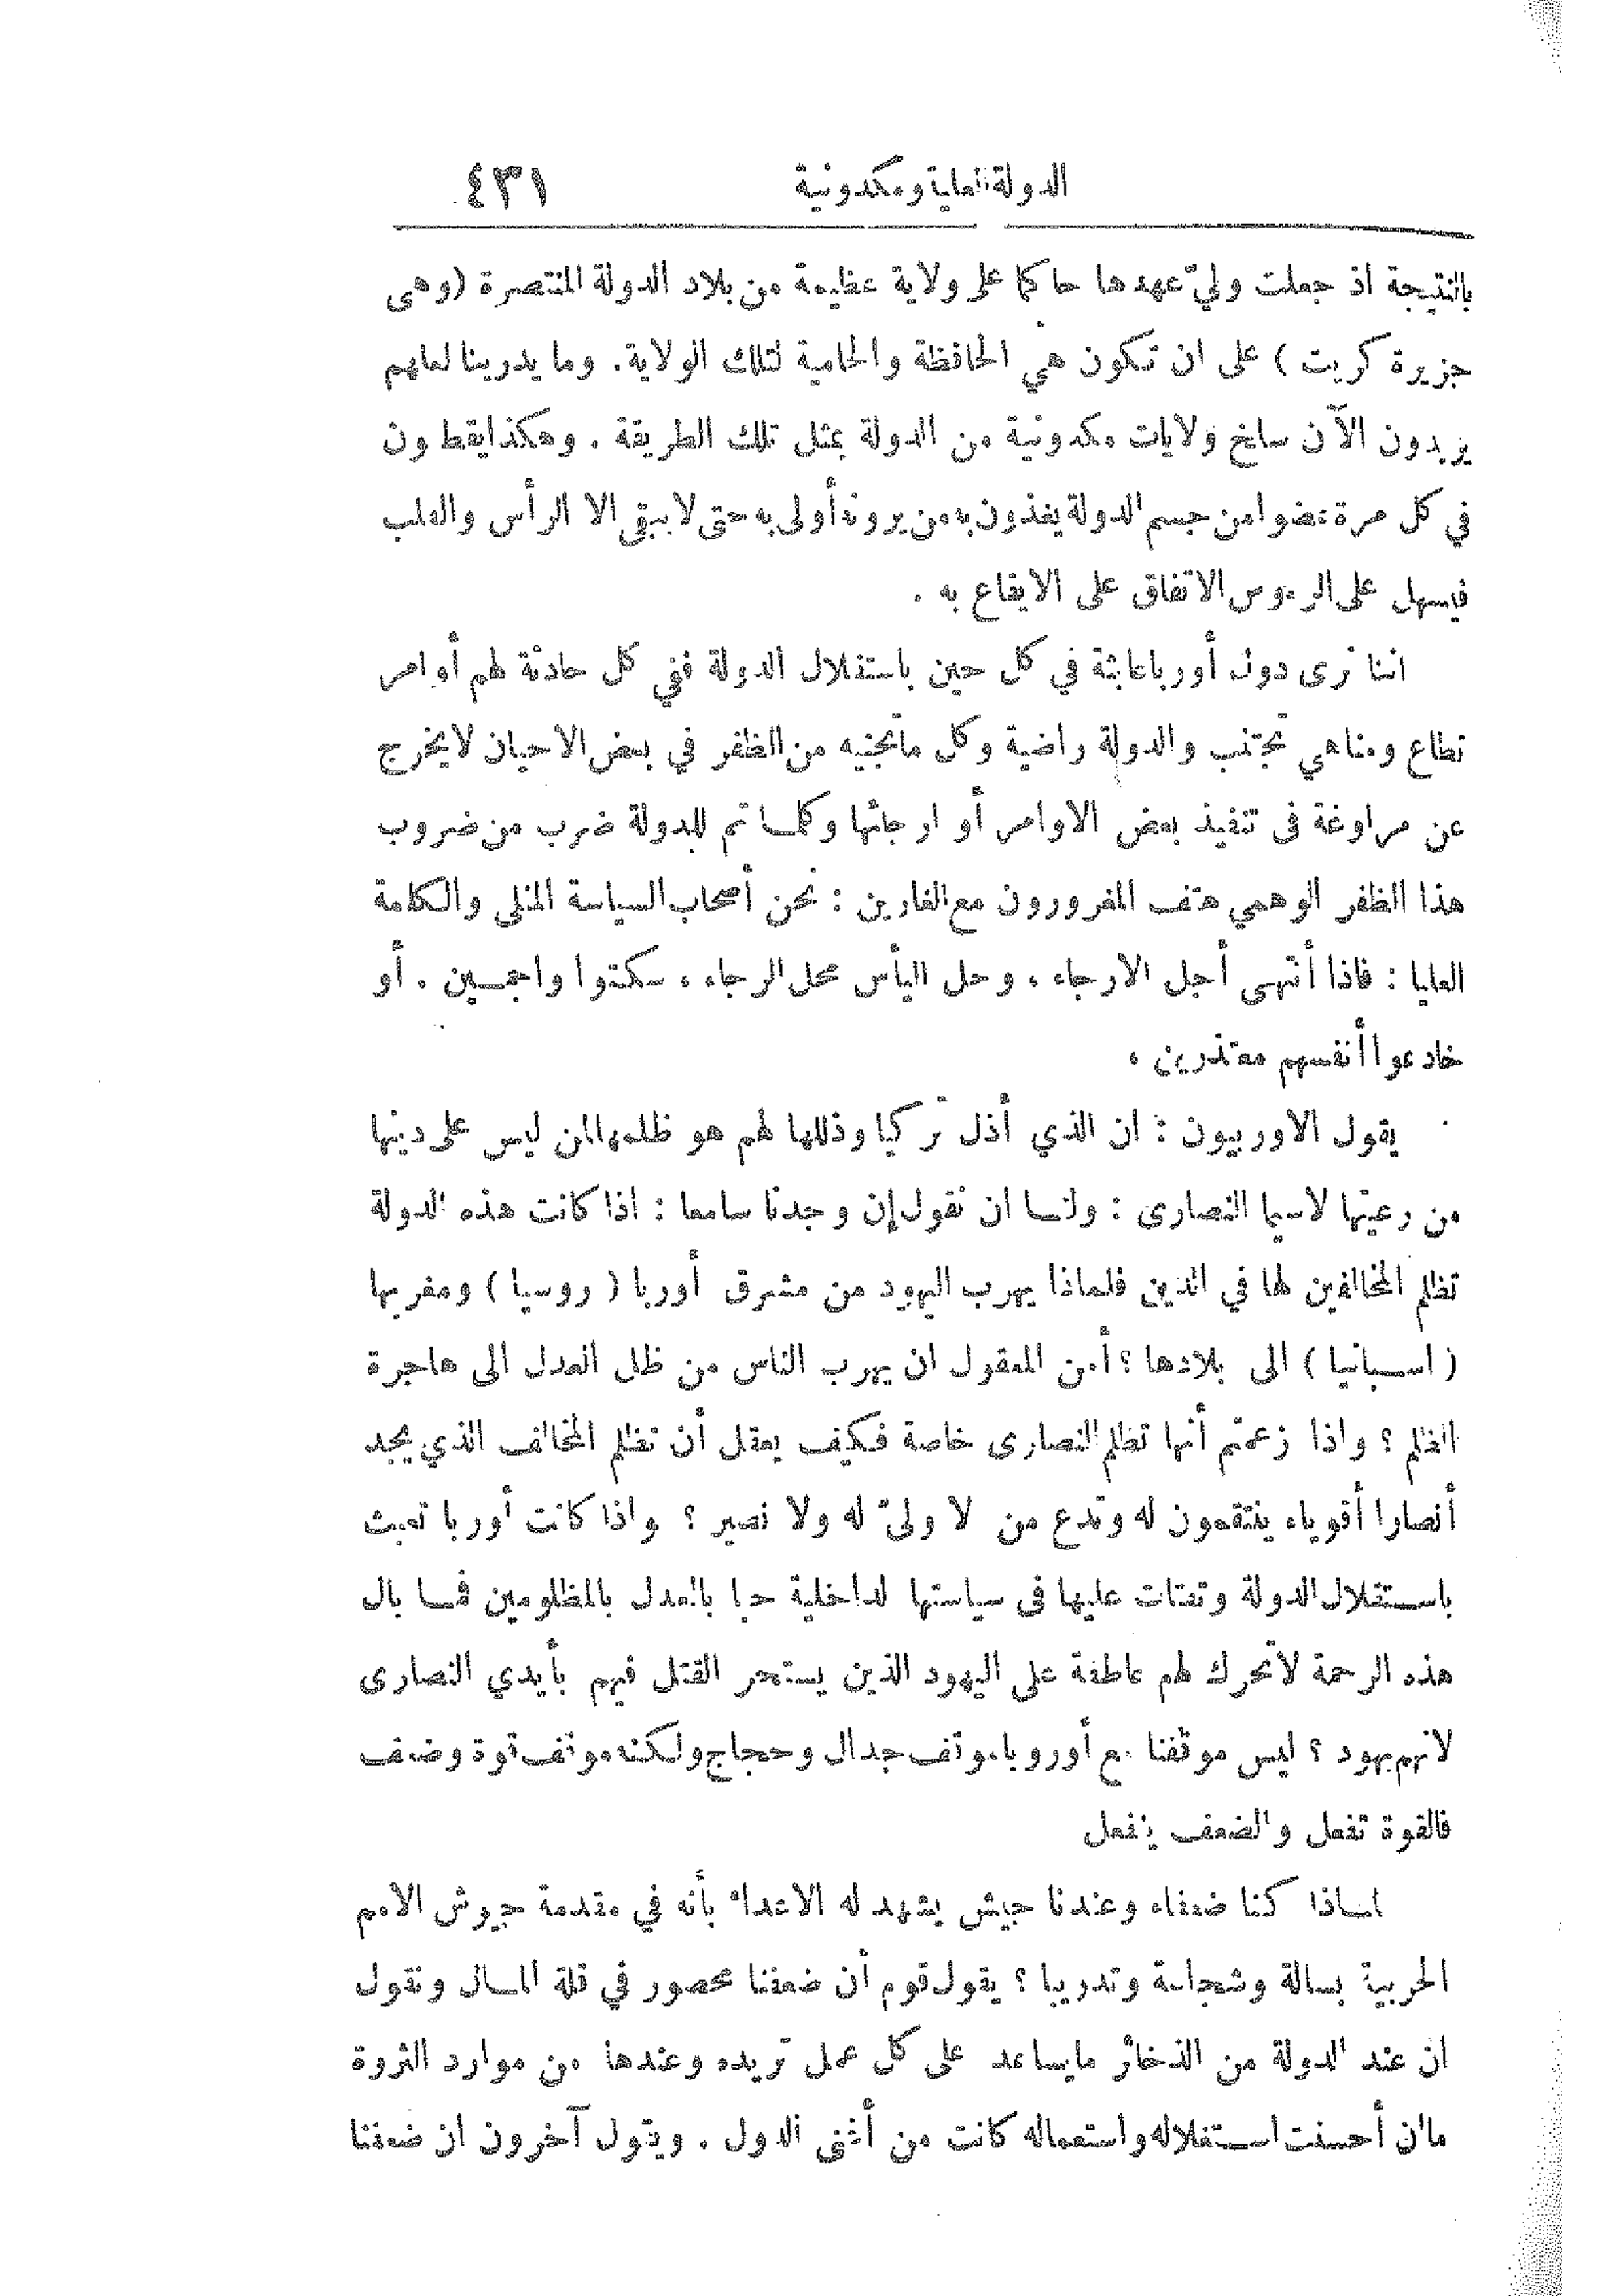 الدولة العلية ومكدونية ٤٣١
بالنتيجة اذ جعلت وليّ عهدها حاكما على ولاية عظيمة من بلاد الدولة المنتصرة (وهى
جزيرة كريت) على ان تكون هي الحافظة والحامية لتلك الولاية. وما يدرينا لعلهم
يريدون الآن سلخ ولايات مكدونية من الدولة بمثل تلك الطريقة. وهكذا يقطعون
في كل مرة عضوا من جسم الدولة يغذون به من يرونه أولى به حتى لا يبقى الا الرأس والقلب
فيسهل على الرءوس الاتفاق على الايقاع به.
اننا نرى دول أوربا عابثة في كل حين باستقلال الدولة ففي كل حادثة لهم أوامر
تطاع ومناهي تجتنب والدولة راضية وكل ما تجنيه من الظفر في بعض الاحيان لا يخرج
عن مراوغة فى تنفيذ بعض الاوامر أو ارجائها وكلما تم للدولة ضرب من ضروب
هذا الظفر الوهمي هتف المغرورون مع الغارين: نحن أصحاب السياسة المثلى والكلمة
العليا: فاذا أنتهى أجل الارجاء، وحل اليأس محل الرجاء، سكتوا واجمين. أو
خادعوا أنفسهم معتذرين.
يقول الاوربيون: ان الذي أذل تركيا وذللها لهم هو ظلمها لمن ليس على دينها
من رعيتها لاسيما النصارى: ولنا ان نقول إن وجدنا سامعا: اذا كانت هذه الدولة
تظلم المخالفين لها في الدين فلماذا يهرب اليهود من مشرق أوربا (روسيا) ومغربها
(اسبانيا) الى بلادها؟ أمن المعقول ان يهرب الناس من ظل العدل الى هاجرة
الظلم؟ واذا زعمتم أنها تظلم النصارى خاصة فكيف يعقل أن تظلم المخالف الذي يجد
أنصارا أقوياء ينتقمون له وتدع من لا وليّ له ولا نصير؟ واذا كانت أوربا تعبث
باستقلال الدولة وتفتات عليها فى سياستها الداخلية حبا بالعدل بالمظلومين فما بال
هذه الرحمة لا تحرك لهم عاطفة على اليهود الذين يستحر القتل فيهم بأيدي النصارى
لانهم يهود؟ ليس موقفنا مع أوروبا موقف جدال وحجاج ولكنه موقف قوة وضعف
فالقوة تفعل والضعف ينفعل
لماذا كنا ضعفاء وعندنا جيش يشهد له الاعداء بأنه في مقدمة جيوش الامم
الحربية بسالة وشجاعة وتدريبا؟ يقول قوم أن ضعفنا محصور في قلة المال ونقول
ان عند الدولة من الذخائر ما يساعد على كل عمل تريده وعندها من موارد الثروة
ما ان أحسنت استغلاله واستعماله كانت من أغنى الدول. ويقول آخرون ان ضعفنا